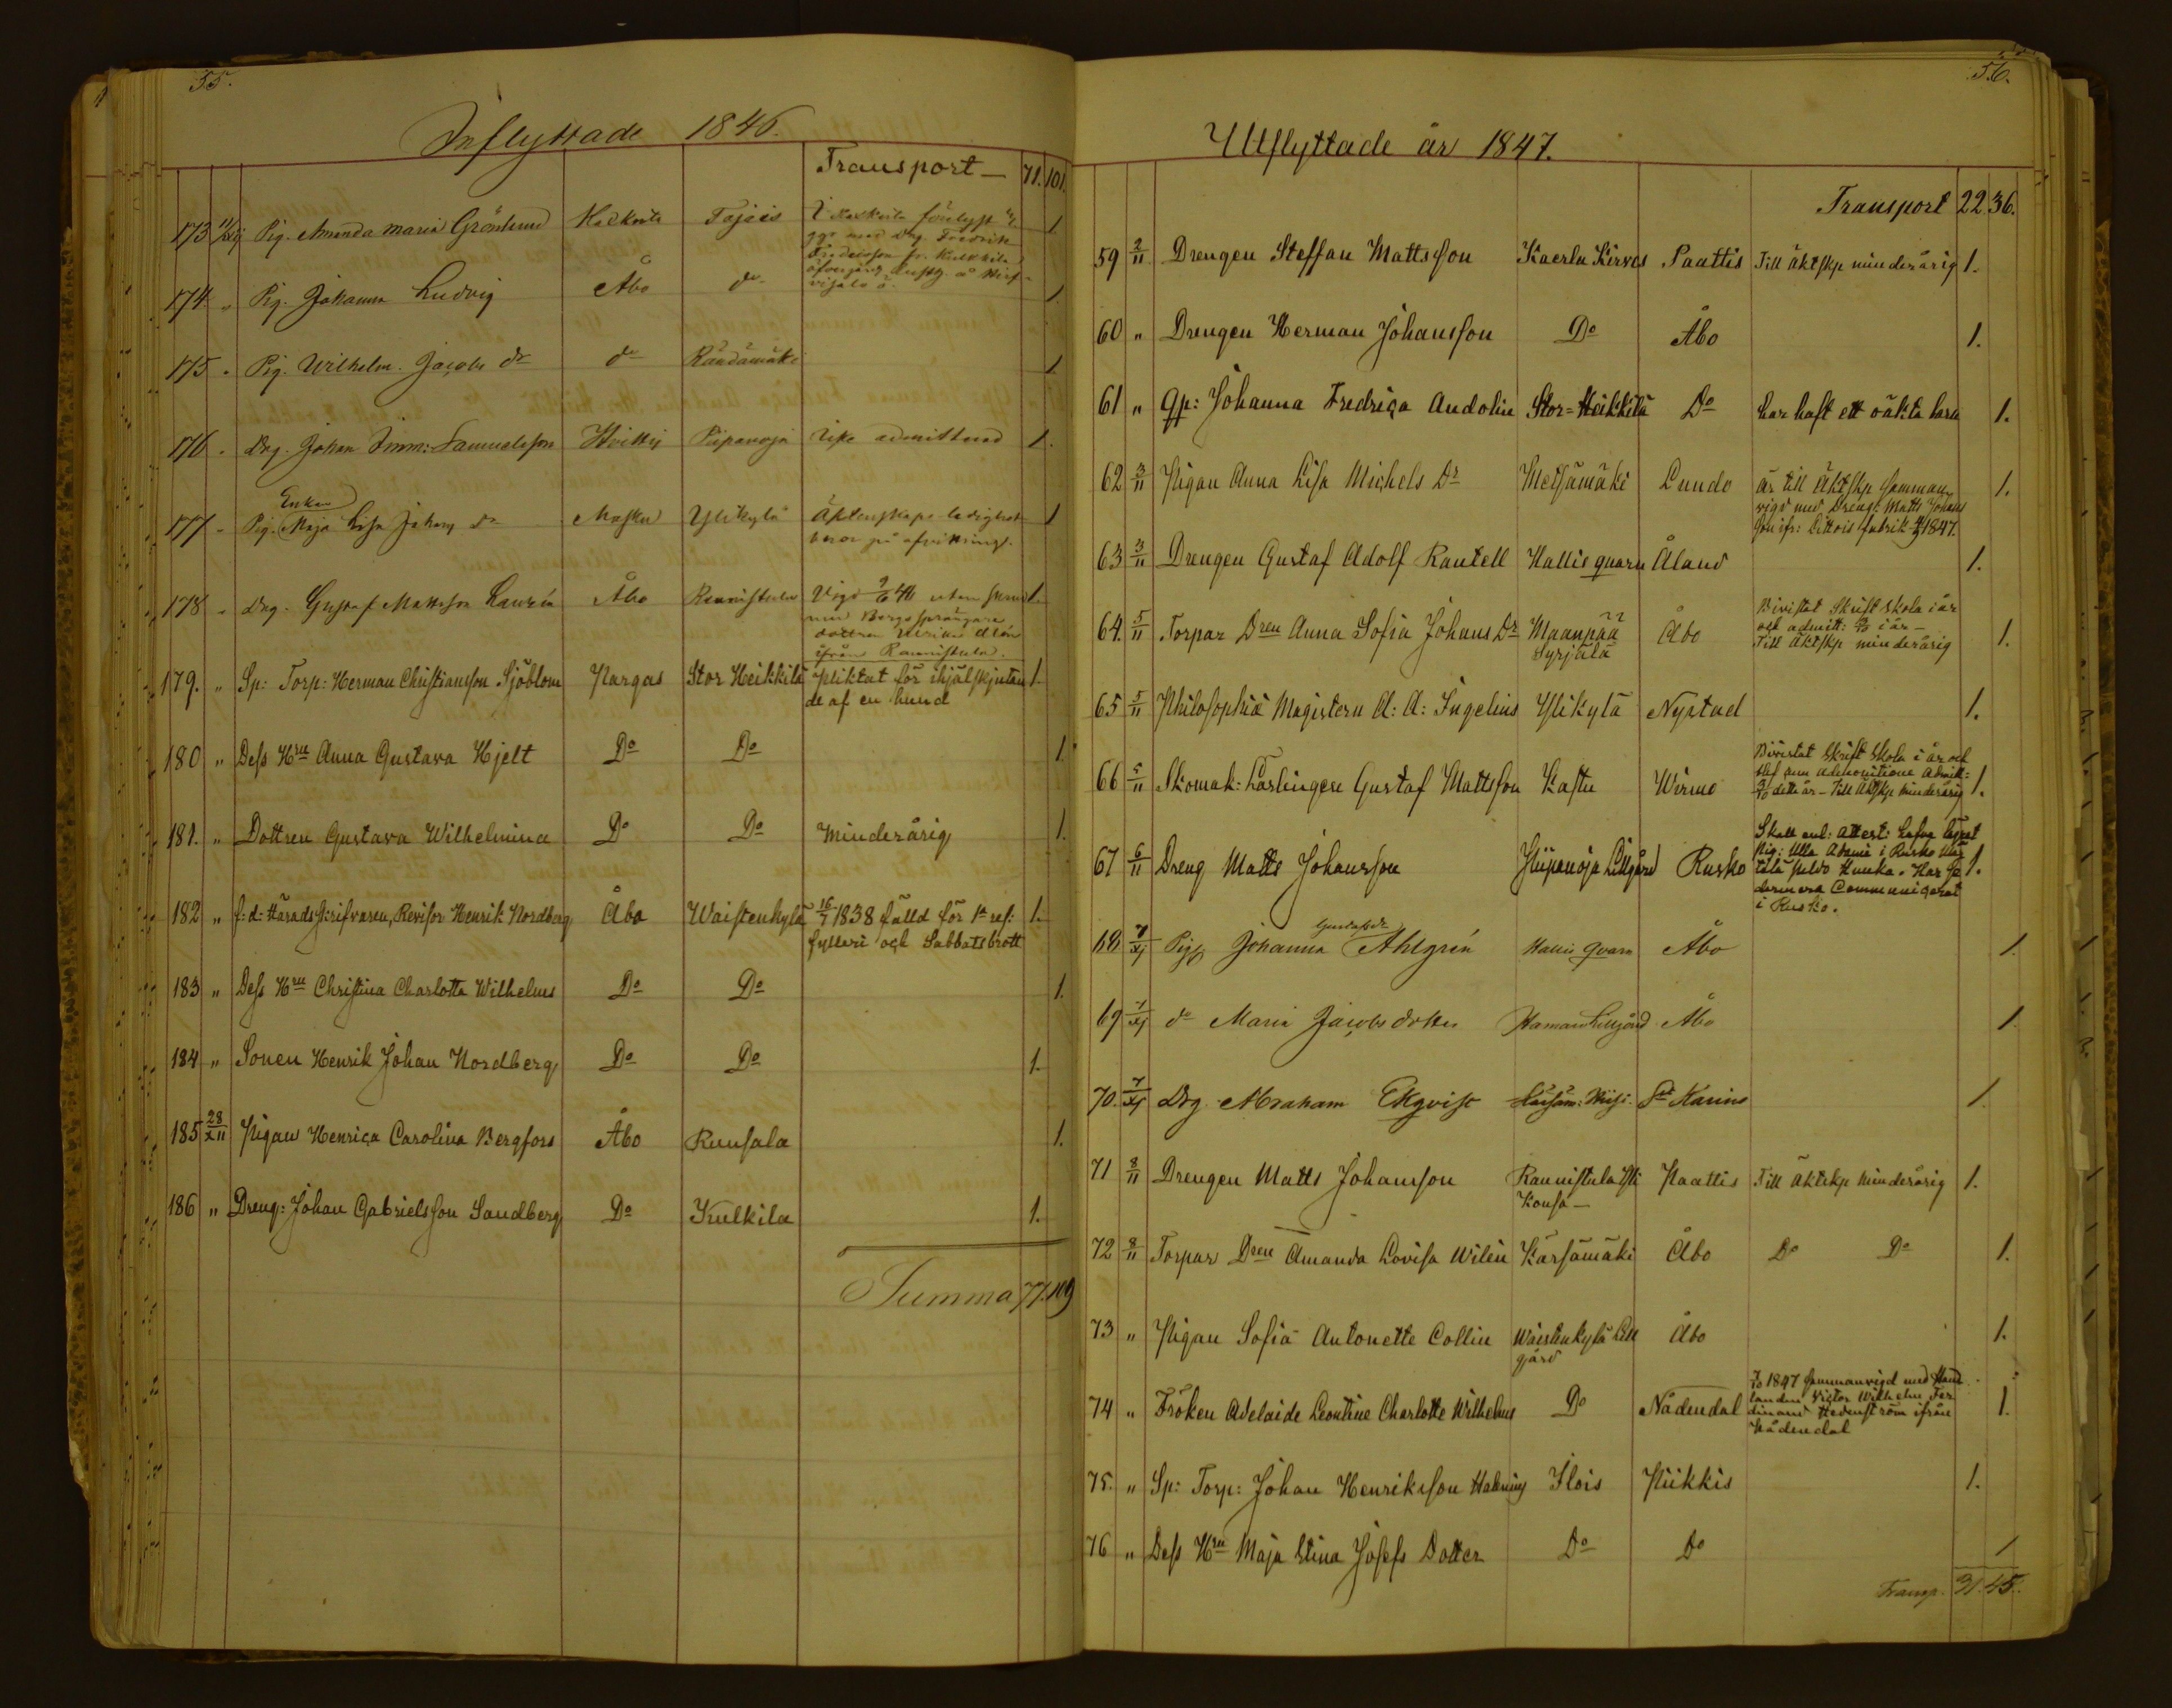 55.
Inflyttade 1846.
Transport — 71. 101.
173 11/XII Pig. Amanda Maria Grönlund Kakerta Tojais 1
med Drg. Fredrik
174 " Pig. Johanna Ludvig Åbo do 1
175 " Pig. Wilhelm. Jacobs dr do Rändämäki 1
176 " Drg. Johan Imm: Samuelsson Hvittis Piipanoja Icke admitterad 1.
Enkan
177 " Pig. Maja Lisa Johans dr Masku Ylikylä Äktenskaps ledighet 1
beror på afvittring.
178 " Drg. Gustaf Mattsson Laurén Åbo Raunistula Vigd 1.
med
dottren Ulrika
ifrån Raunistula.
179. " Sp: Torp: Herman Christiansson Sjöblom Pargas Stor Heikkilä Pliktat för ihjälskjutan 1.
de af en hund
180 " Dess Hru Anna Gustava Hjelt Do Do 1.
181. " Dottren Gustava Wilhelmina Do Do Minderårig 1.
182 " f: d: Häradsskrifvaren, Revisor Henrik Nordberg Åbo Waistenkylä 16/7 1838 fälld för 1a res: 1.
fylleri och Sabbatsbrott
183 " Dess Hru Christina Charlotta Wilhelms Do Do 1.
184 " Sonen Henrik Johan Nordberg Do Do 1.
185 28/XII Pigan Henrica Carolina Bergfors Åbo Runsala 1.
186 " Dreng: Johan Gabrielsson Sandberg Do Kulkila 1.
Summa 77. 109
56.
Utflyttade år 1847.
Transport 22 36.
59 2/11 Drengen Steffan Mattsson Kaerla Kirves Paattis Till äktskp minderårig 1.
60 " Drengen Herman Johansson Do Åbo 1.
61 " Qp: Johanna Fredrica Andolin Stor=Heikkilä Do har haft ett oäkta barn 1.
62 3/11 Pigan Anna Lisa Michels Dr Metsämäki Lundo är till Äktskp samman 1.
vigd med Dreng: Matts Johans
son ifr: Littois fabrik 1847.
63 3/11 Drengen Gustaf Adolf Rantell Hallis quarn Åland 1.
64. 5/11 Torpar Dren Anna Sofia Johans Dr Maanpää Åbo Bivistat Skrift Skola i år 1.
Syrjälä och admitt: i år —
Till Äktskp minderårig
65 5/11 Philosophiä Magistern A: A: Ingelius Ylikylä Nystad 1.
66 5/11 Skomak: Lärlingen Gustaf Mattsson Kastu Wirmo Bivistat Skrift Skola i år och 1.
blef cum admonitione Admitt:
detta år — Till Äktskp minderårig
67 6/11 Dreng Matts Johansson Piipanoja Lillgård Rusko Skall enl: attest: hafva lägrat 1.
Pig: Ulla i Rusko
Hunka. Har se
dermera Communicerat
i Rusko.
68 7/XI Pig Johanna Gustafsdr Ahlgrén Hallis quarn Åbo 1.
69 7/XI do Maria Jacobs dotter Hamaro Lillgård Åbo 1
70. 7/XI Drg Abraham Ekqvist St Karins 1
71 8/11 Drengen Matts Johansson Raunistula Yli Paattis Till Äktskp Minderårig 1.
Konsa —
72 8/11 Torpar Dren Amanda Lovisa Wilén Kärsämäki Åbo Do Do 1.
73 " Pigan Sofia Antonette Collin Wäistenkylä Lill Åbo 1.
gård
74 " Fröken Adelaide Leontine Charlotte Wilhelms Do Nådendal 1847 sammanvigd med Hand 1.
landen Victor Wilhelm Fer
dinand Hedenström ifrån
Nådendal
75. " Sp: Torp: Johan Henriksson Halenius Ilois Piikkis 1.
76 " Dess Hru Maja Stina Josefs Dotter Do Do 1
Transp. 31. 45.